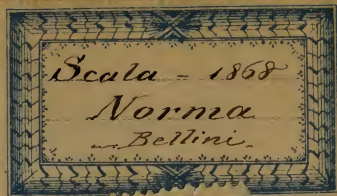 Scala - 1868
Norma
Bellini.